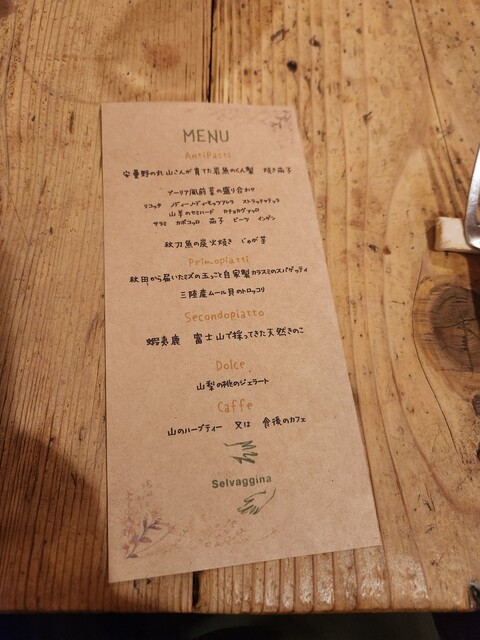 MENU
AntiPasti
安曇野の丸山さんが育てた岩魚のくん製 焼き茄子
プーリア風前菜の盛り合わせ
リコッタ ノディーノディモッツァレラ ストラッチャテッラ
山羊のセミハード カチョカヴァッロ
サラミ カポコッロ 茄子 ビーツ インゲン
秋刀魚の炭火焼き じゃが芋
Primopiatti
秋田から届いたミズの玉っこと自家製カラスミのスパゲッティ
三陸産ムール貝のトロッコリ
Secondopiatto
蝦夷鹿 富士山で採ってきた天然きのこ
Dolce
山梨の桃のジェラート
Caffe
山のハーブティー 又は 食後のカフェ
Selvaggina